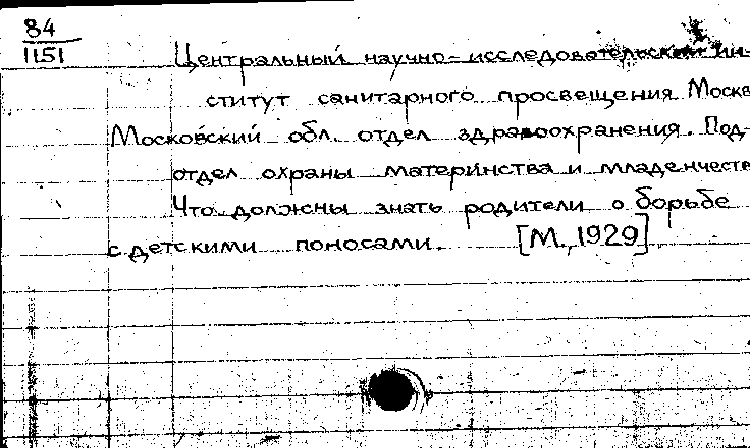 84
1151
Центральный научно-исследовательский ин-
ститут санитарного просвещения. Москва
Московский обл. отдел здравоохранения. Под-
отдел охраны материнства и младенчеств
Что должны знать родители о борьбе
с детскими поносами. [М., 1929]